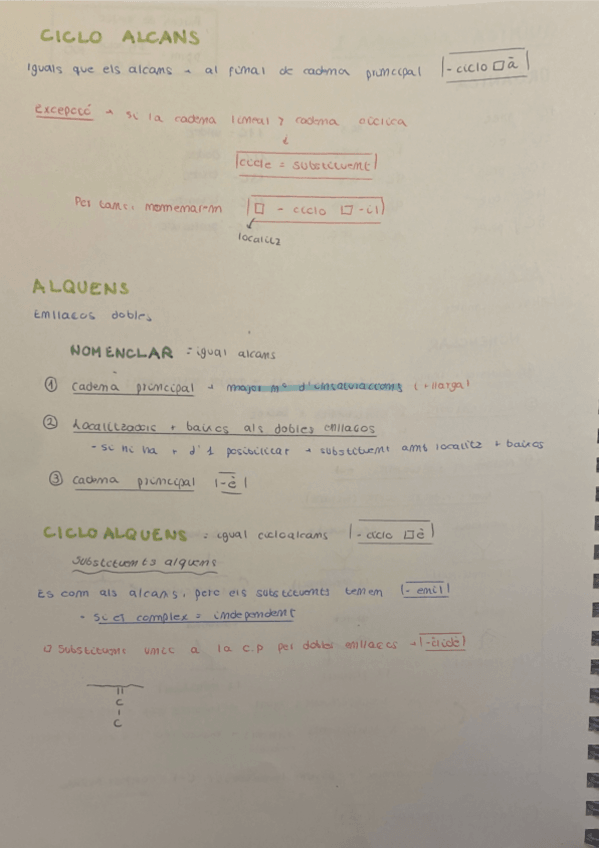 CICLO ALCANS
Iguals que els alcans → al final de cadena principal |-ciclo □à|
Excepció → si la cadena lineal > cadena cíclica
↓
|cicle = substituent|
Per tant, nomenar-m |□ - ciclo □-il|
localitz
ALQUENS
Enllaços dobles
NOMENCLAR = igual alcans
① cadena principal → major nº d'insaturacions (+llarga)
② Localitzadors + baixos als dobles enllaços
- si hi ha + d'1 posibilitat → substituent amb localitz + baixos
③ cadena principal |-è|
CICLO ALQUENS = igual cicloalcans |-ciclo □è|
Substituents alquens
Es com als alcans, però els substituents tenen |-enil|
- si el complex = independent
□ Substituent unit a la C.P per dobles enllaços → |-ilidè|
C
C